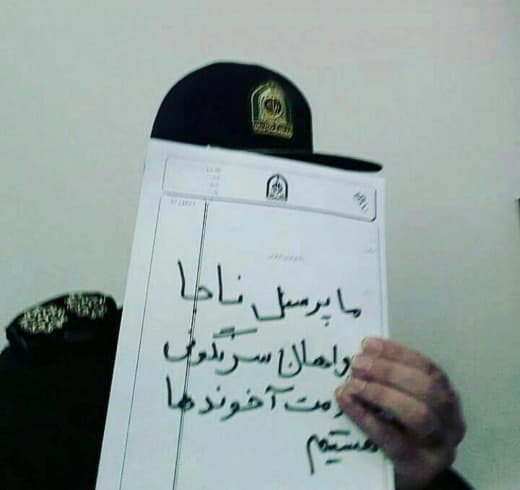 ما پرسنل ناجا
واهان سرنگونی
ومت آخوندها
هستیم